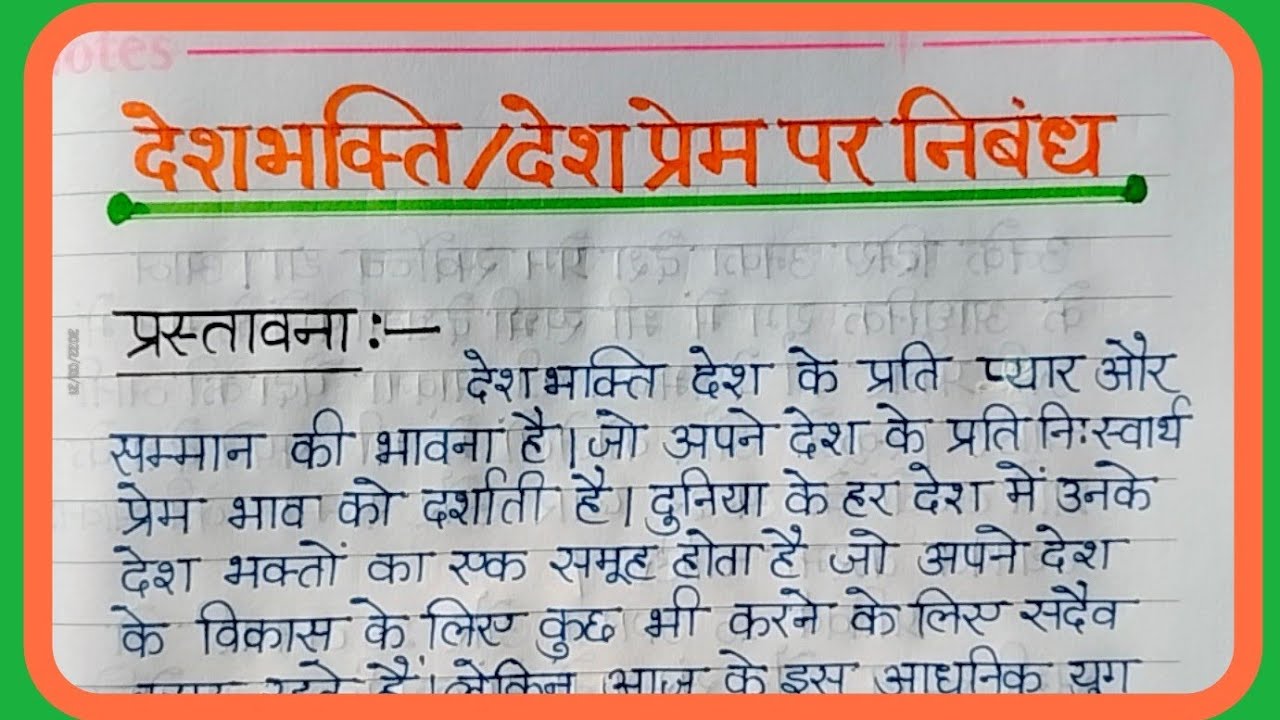 otes
देशभक्ति/देश प्रेम पर निबंध
प्रस्तावना :—
देशभक्ति देश के प्रति प्यार और
सम्मान की भावना है। जो अपने देश के प्रति निःस्वार्थ
प्रेम भाव को दर्शाती है। दुनिया के हर देश में उनके
देश भक्तों का एक समूह होता है जो अपने देश
के विकास के लिए कुछ भी करने के लिए सदैव
रहते हैं। लेकिन आज के इस आधुनिक युग
2022/03/21